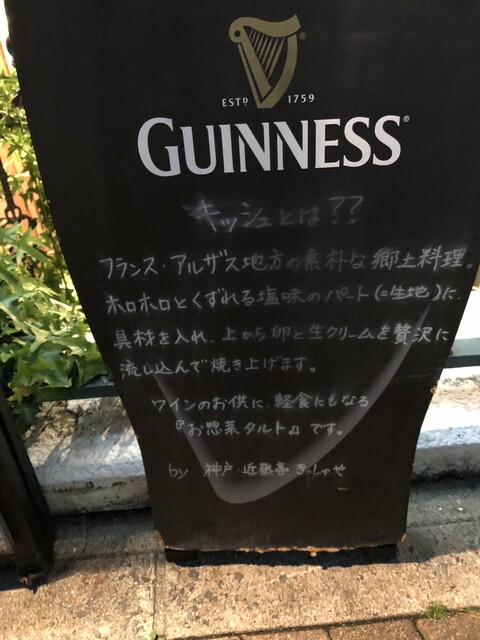 ESTD 1759
GUINNESS®
キッシュとは??
フランス・アルザス地方の素朴な郷土料理。
ホロホロとくずれる塩味のパート(=生地)に、
具材を入れ、上から卵と生クリームを贅沢に
流し込んで焼き上げます。
ワインのお供に、軽食にもなる
『お惣菜タルト』です。
by 神戸・近藤亭 きっしゅや